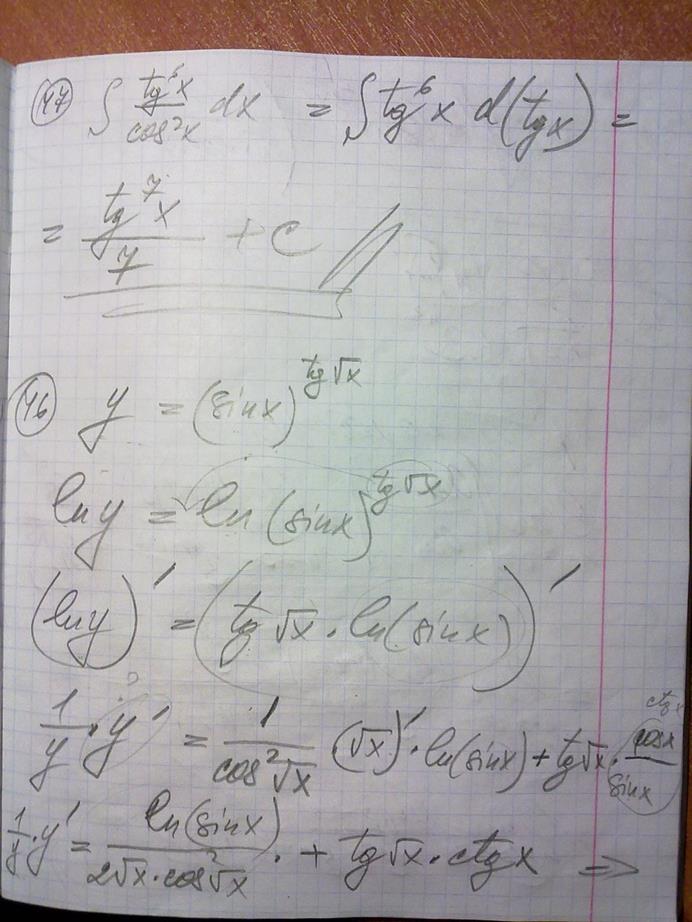 47 ∫ tg⁶x/cos²x dx = ∫ tg⁶x d(tgx) =
= tg⁷x/7 + C
46 y = (sinx)^tg√x
lny = ln(sinx)^tg√x
(lny)′ = (tg√x · ln(sinx))′
1/y · y′ = 1/cos²√x (√x)′ · ln(sinx) + tg√x · cosx/sinx ctgx
1/y · y′ = ln(sinx)/2√x·cos²√x · + tg√x · ctgx ⇒